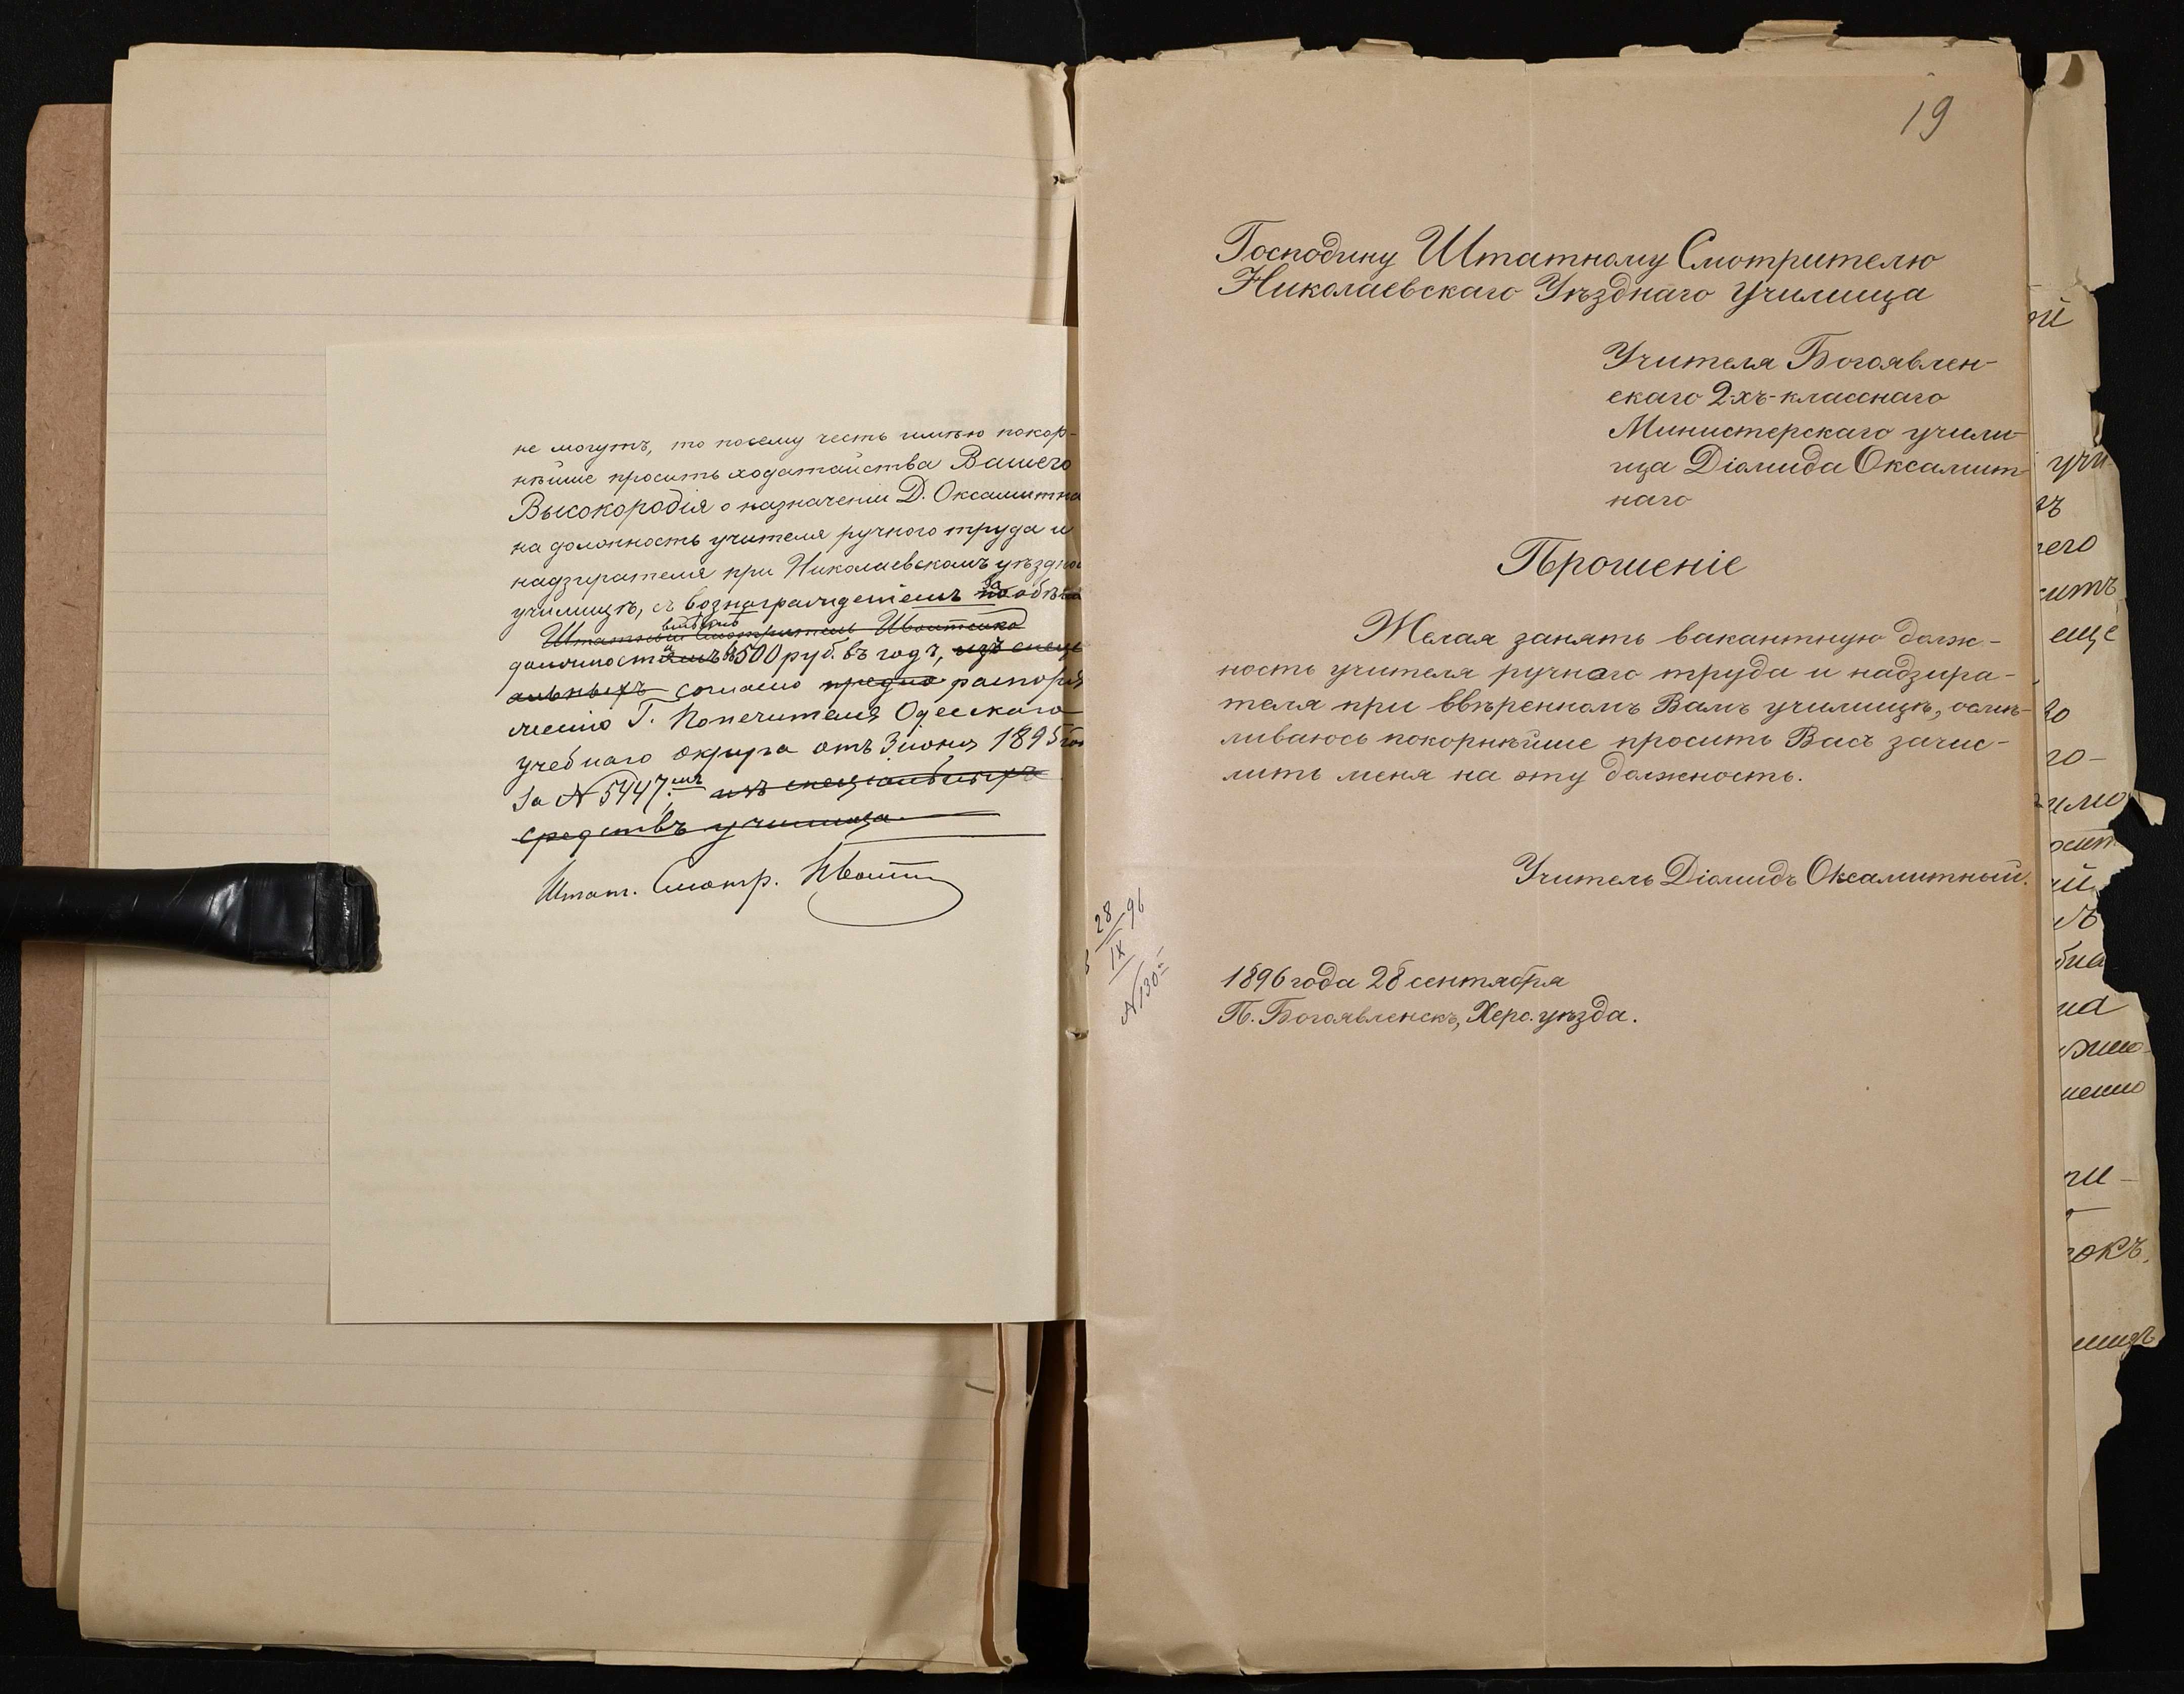 не могутъ, то посему честь имѣю покор-
нѣйше просить ходатайства Вашего
Высокородія о назначеніи Д. Оксамитна
на должность учителя ручного труда и
надзирателя при Николаевскомъ уѣздно
училищѣ, съ вознагражденіемъ по за обѣ
Штатный Смотритель Ивашенко
должности 500 руб. въ годъ, изъ специ
альныхъ согласно предло распоря
женію Г. Попечителя Одесскаго
учебнаго округа отъ 3 іюня 1895 го
за № 5447.мъ изъ спеціальныхъ
средствъ училища.
Штат. Смотр.
19
Господину Штатному Смотрителю
Николаевскаго Уѣзднаго Училища
Учителя Богоявлен-
скаго 2-хъ-класснаго
Министерскаго учили-
ща Діомида Оксамит-
наго
Прошеніе
Желая занять вакантную долж-
ность учителя ручнаго труда и надзира-
теля при ввѣренномъ Вамъ училищѣ, осмѣ-
ливаюсь покорнѣйше просить Васъ зачис-
лить меня на эту должность.
Учитель Діомидъ Оксамитный.
28/IX 96
№ 130
1896 года 28 сентября
П. Богоявленскъ, Херс. уѣзда.